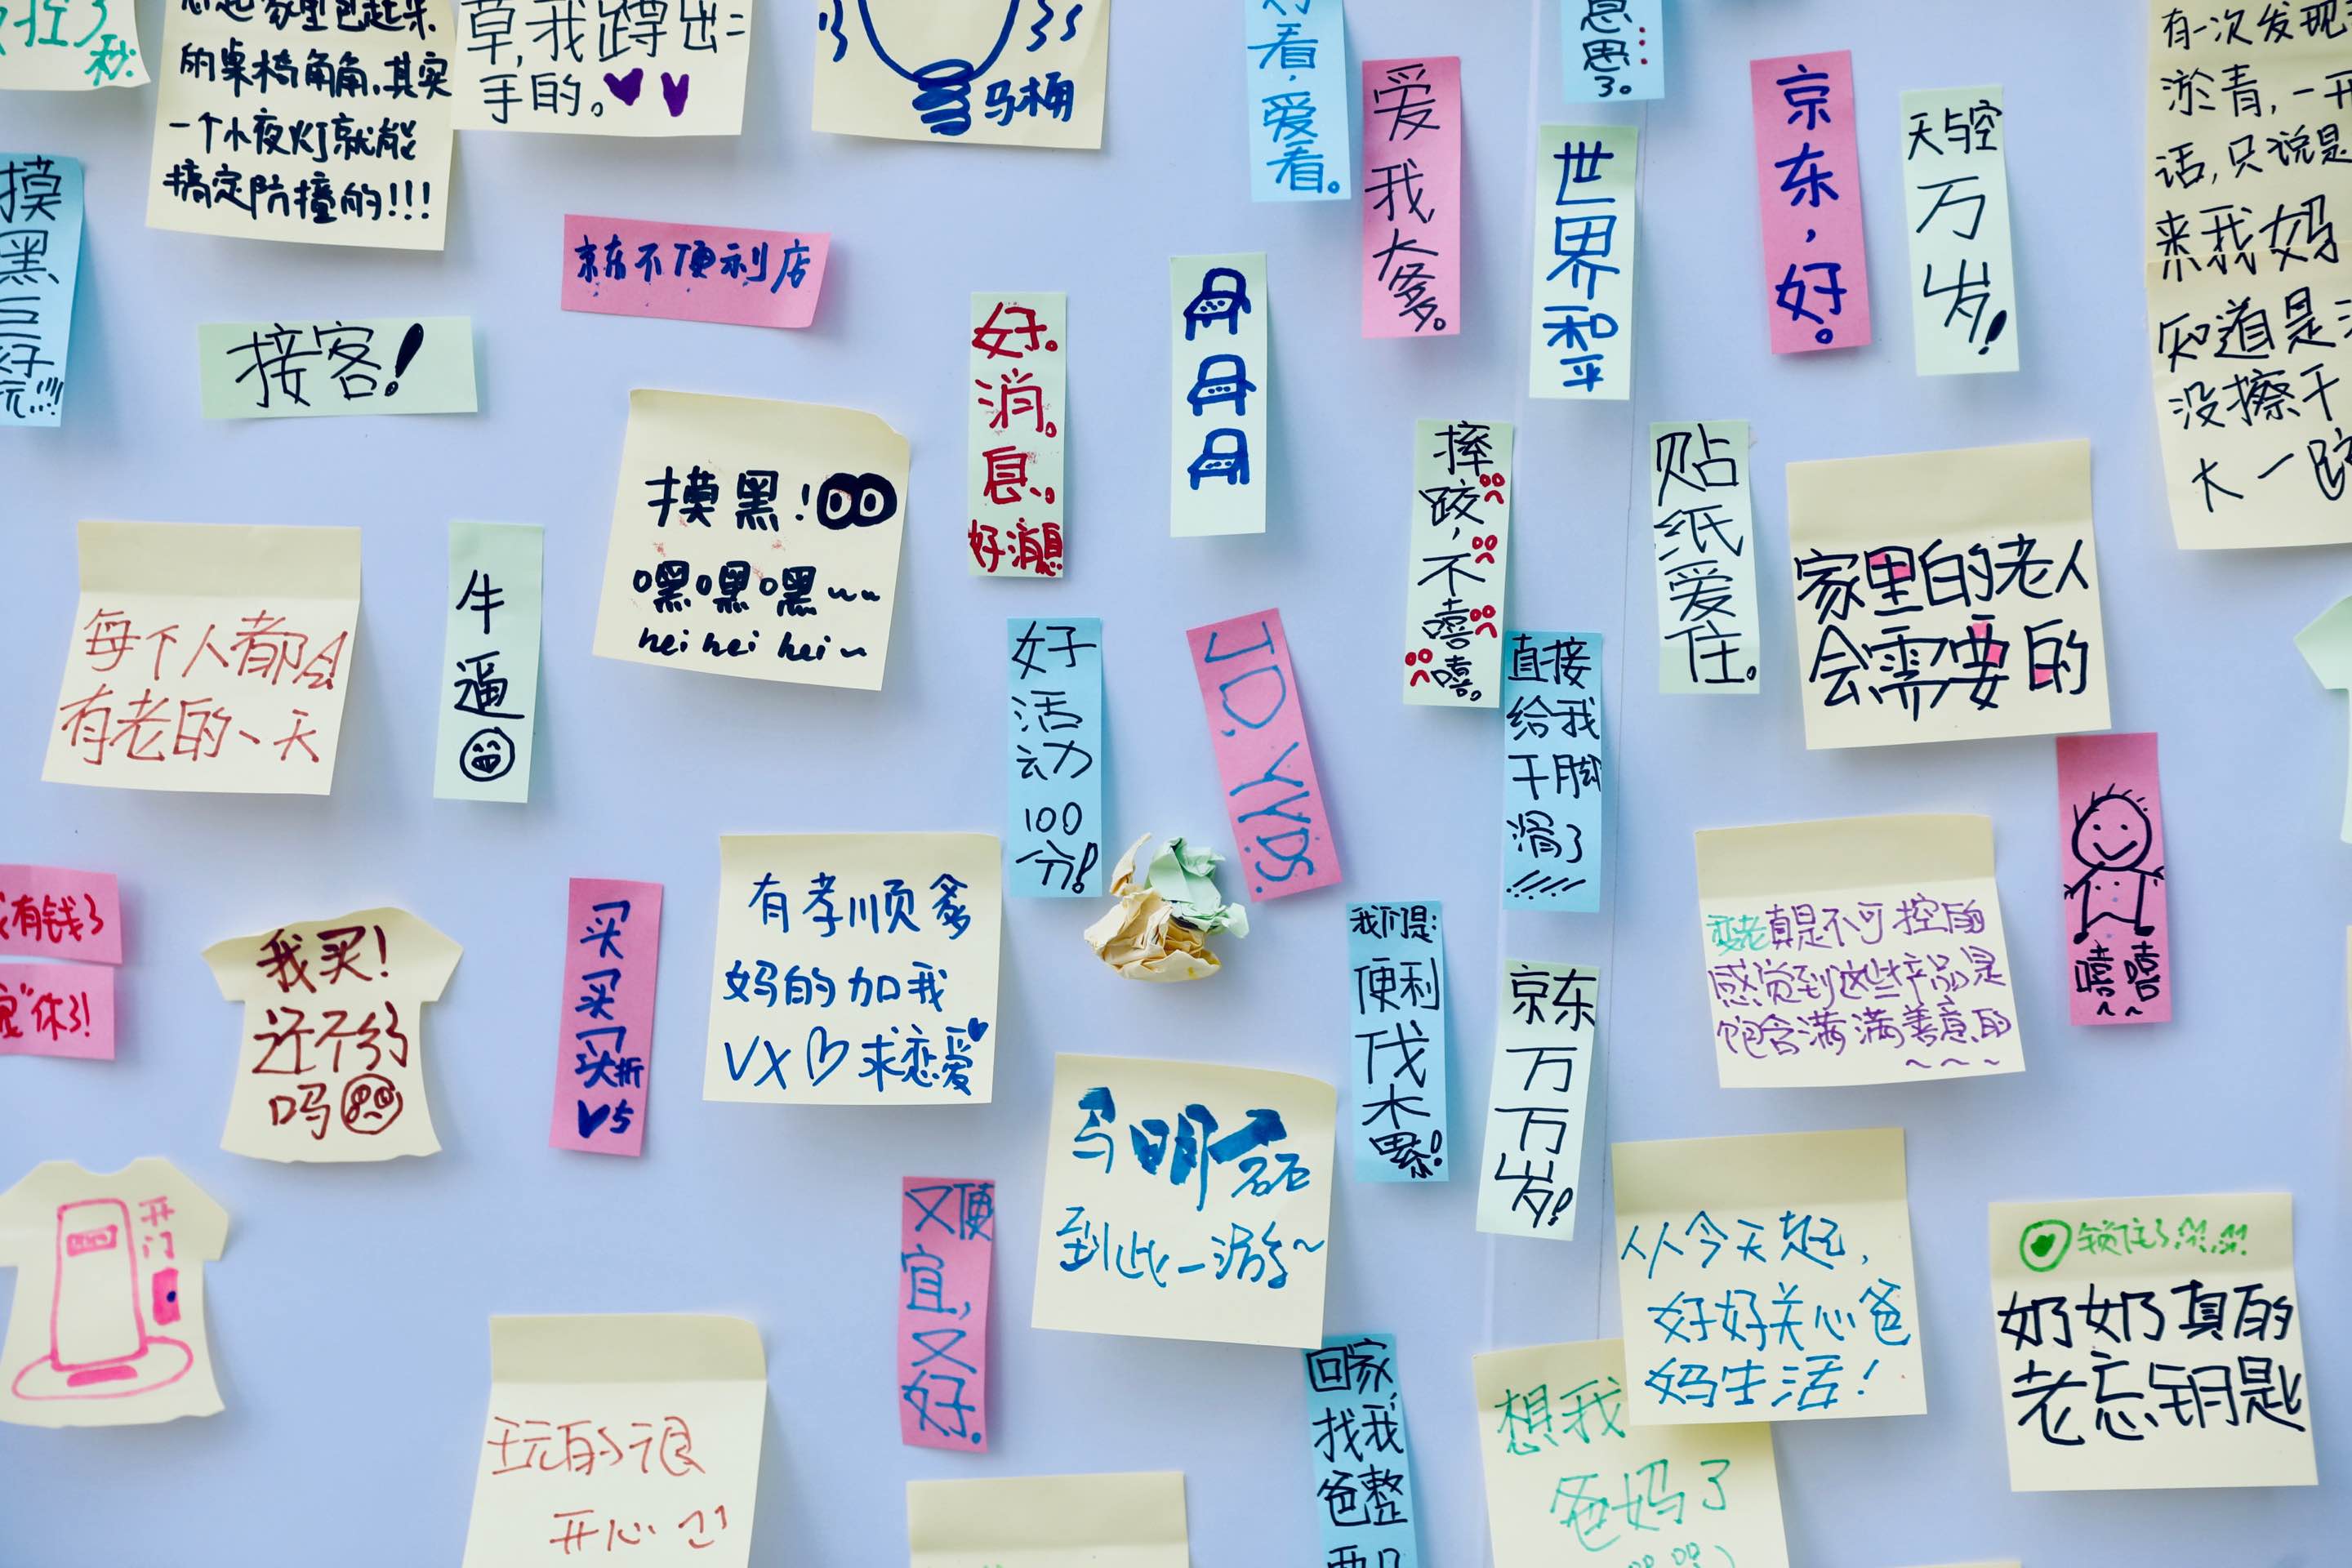 控了
秒
的桌椅角角,其实
一个小夜灯就能
搞定防撞的!!!
草,我蹲出二
手的。
马桶
看,爱看。
爱我,大爹。
意思了。
世界和平
京东,好。
天与空万岁!
有一次发现
淤青,一开
话,只说是
来我妈
知道是
没擦干
大一跤
摸黑
玩!!!
京东不便利店
接客!
好。消。息。
好消息
摸黑!
嘿嘿嘿~~
hei hei hei~
摔跤,不嘻嘻。
贴纸爱住。
家里的老人
会需要的
每个人都会
有老的一天
牛逼
好活动100分!
JD. YYDS.
直接
给我
干脚
滑了
有钱了
休了!
我买!
还不够
吗
买买买
折
5
有孝顺爹
妈的加我
VX 求恋爱
我们是:
便利
伐
木
累!
京东万万岁!
变老真是不可控的
感觉到这些产品是
饱含满满善意的
~~~
嘻嘻~~
开门
又便宜,又好.
马明磊
到此一游~
从今天起,
好好关心爸
妈生活!
锁住了!!!
奶奶真的
老忘钥匙
玩的很
开心
回家
找我
爸整
两口
想我
爸妈了